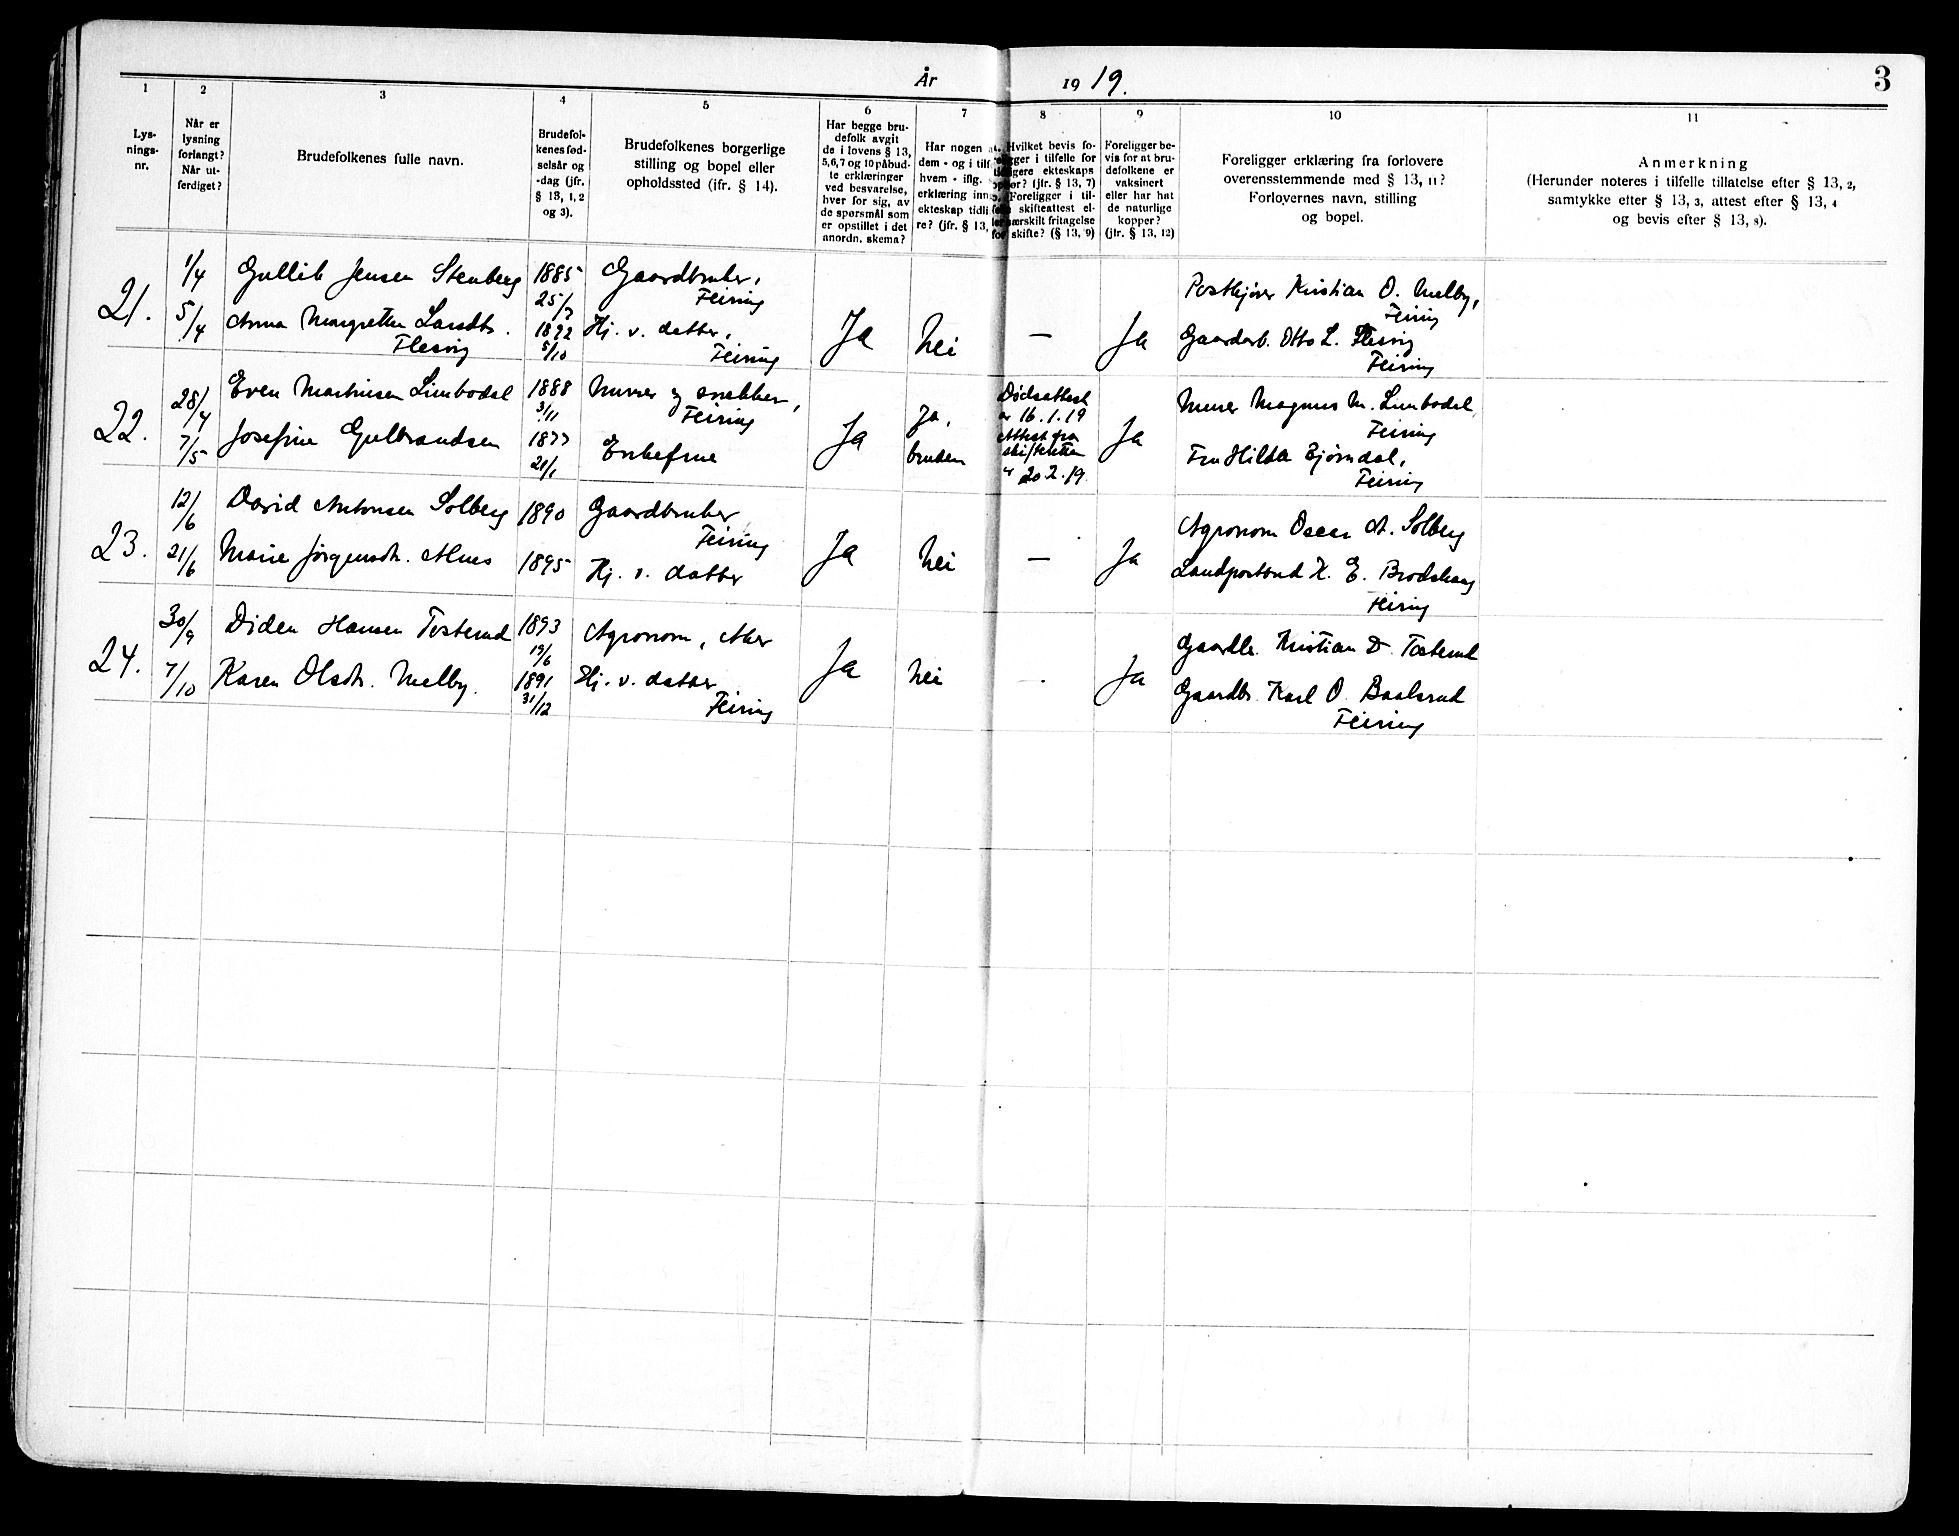 År 1919.
3
1
2
3
4
5
6
7
8
9
10
11
Lys-
nings-
nr.
Når er
lysning
forlangt?
Når ut-
ferdiget?
Brudefolkenes fulle navn.
Brudefol-
kenes fød-
selsår og
-dag (jfr.
§ 13, 1, 2
og 3).
Brudefolkenes borgerlige
stilling og bopel eller
opholdssted (jfr. § 14).
Har begge bru-
defolk avgit
de i lovens § 13,
5,6,7 og 10 påbud-
te erklæringer
ved besvarelse,
hver for sig, av
de spørsmål som
er opstillet i det
anordn. skema?
Har nogen
dem - og i tilf
hvem - iflg.
erklæring inn
ekteskap tidli
re? (jfr. § 13,
Hvilket bevis fo-
gger i tilfelle for
igere ekteskaps
ør? (jfr. § 13, 7)
Foreligger i til-
skifteattest el-
særskilt fritagelse
for skifte? (§ 13, 9)
Foreligger be-
vis for at bru-
defolkene er
vaksinert
eller har hat
de naturlige
kopper?
(jfr. § 13, 12)
Foreligger erklæring fra forlovere
overensstemmende med § 13, 11?
Forlovernes navn, stilling
og bopel.
Anmerkning
(Herunder noteres i tilfelle tillatelse efter § 13, 2,
samtykke efter § 13, 3, attest efter § 13, 4
og bevis efter § 13, 8).
21.
1/4
5/4
Gullik Jensen Stenberg
Anna Margrethe Larsdtr.
Flesvig
1885
25/7
1892
5/10
Gaardbruker,
Feiring
Hj. v. datter,
Feiring
Ja
Nei
—
Ja
Kristian O. Melby,
Feiring
Gaardb. Otto L. Flesvig
Feiring
22.
28/4
7/5
Even Martinsen Limbodal
Josefine Gulbrandsen
1888
3/11
1877
21/1
Murer og snekker,
Feiring
Enkefrue
Ja
Ja,
bruden
Dødsattest
av 16.1.19
Attest fra
skifteretten
" 20.2.19.
Ja
Murer Magnus M. Limbodal,
Feiring
Fru Hilda Bjørndal,
Feiring
23.
12/6
21/6
David Antonsen Solberg
Marie Jørgensdtr. Alnes
1890
1895
Gaardbruker
Feiring
Hj. v. datter
Ja
Nei
—
Ja
Agronom Oscar A. Solberg
Landpostbud K. E. Brodshaug
Feiring
24.
30/9
7/10
Diden Hansen Tosterud
Karen Olsdtr. Melby.
1893
19/6
1891
31/12
Agronom, Aker
Hj. v. datter
Feiring
Ja
Nei
-.
Ja
Gaardbr. Kristian D. Tosterud
Gaardbr. Karl O. Baalsrud
Feiring